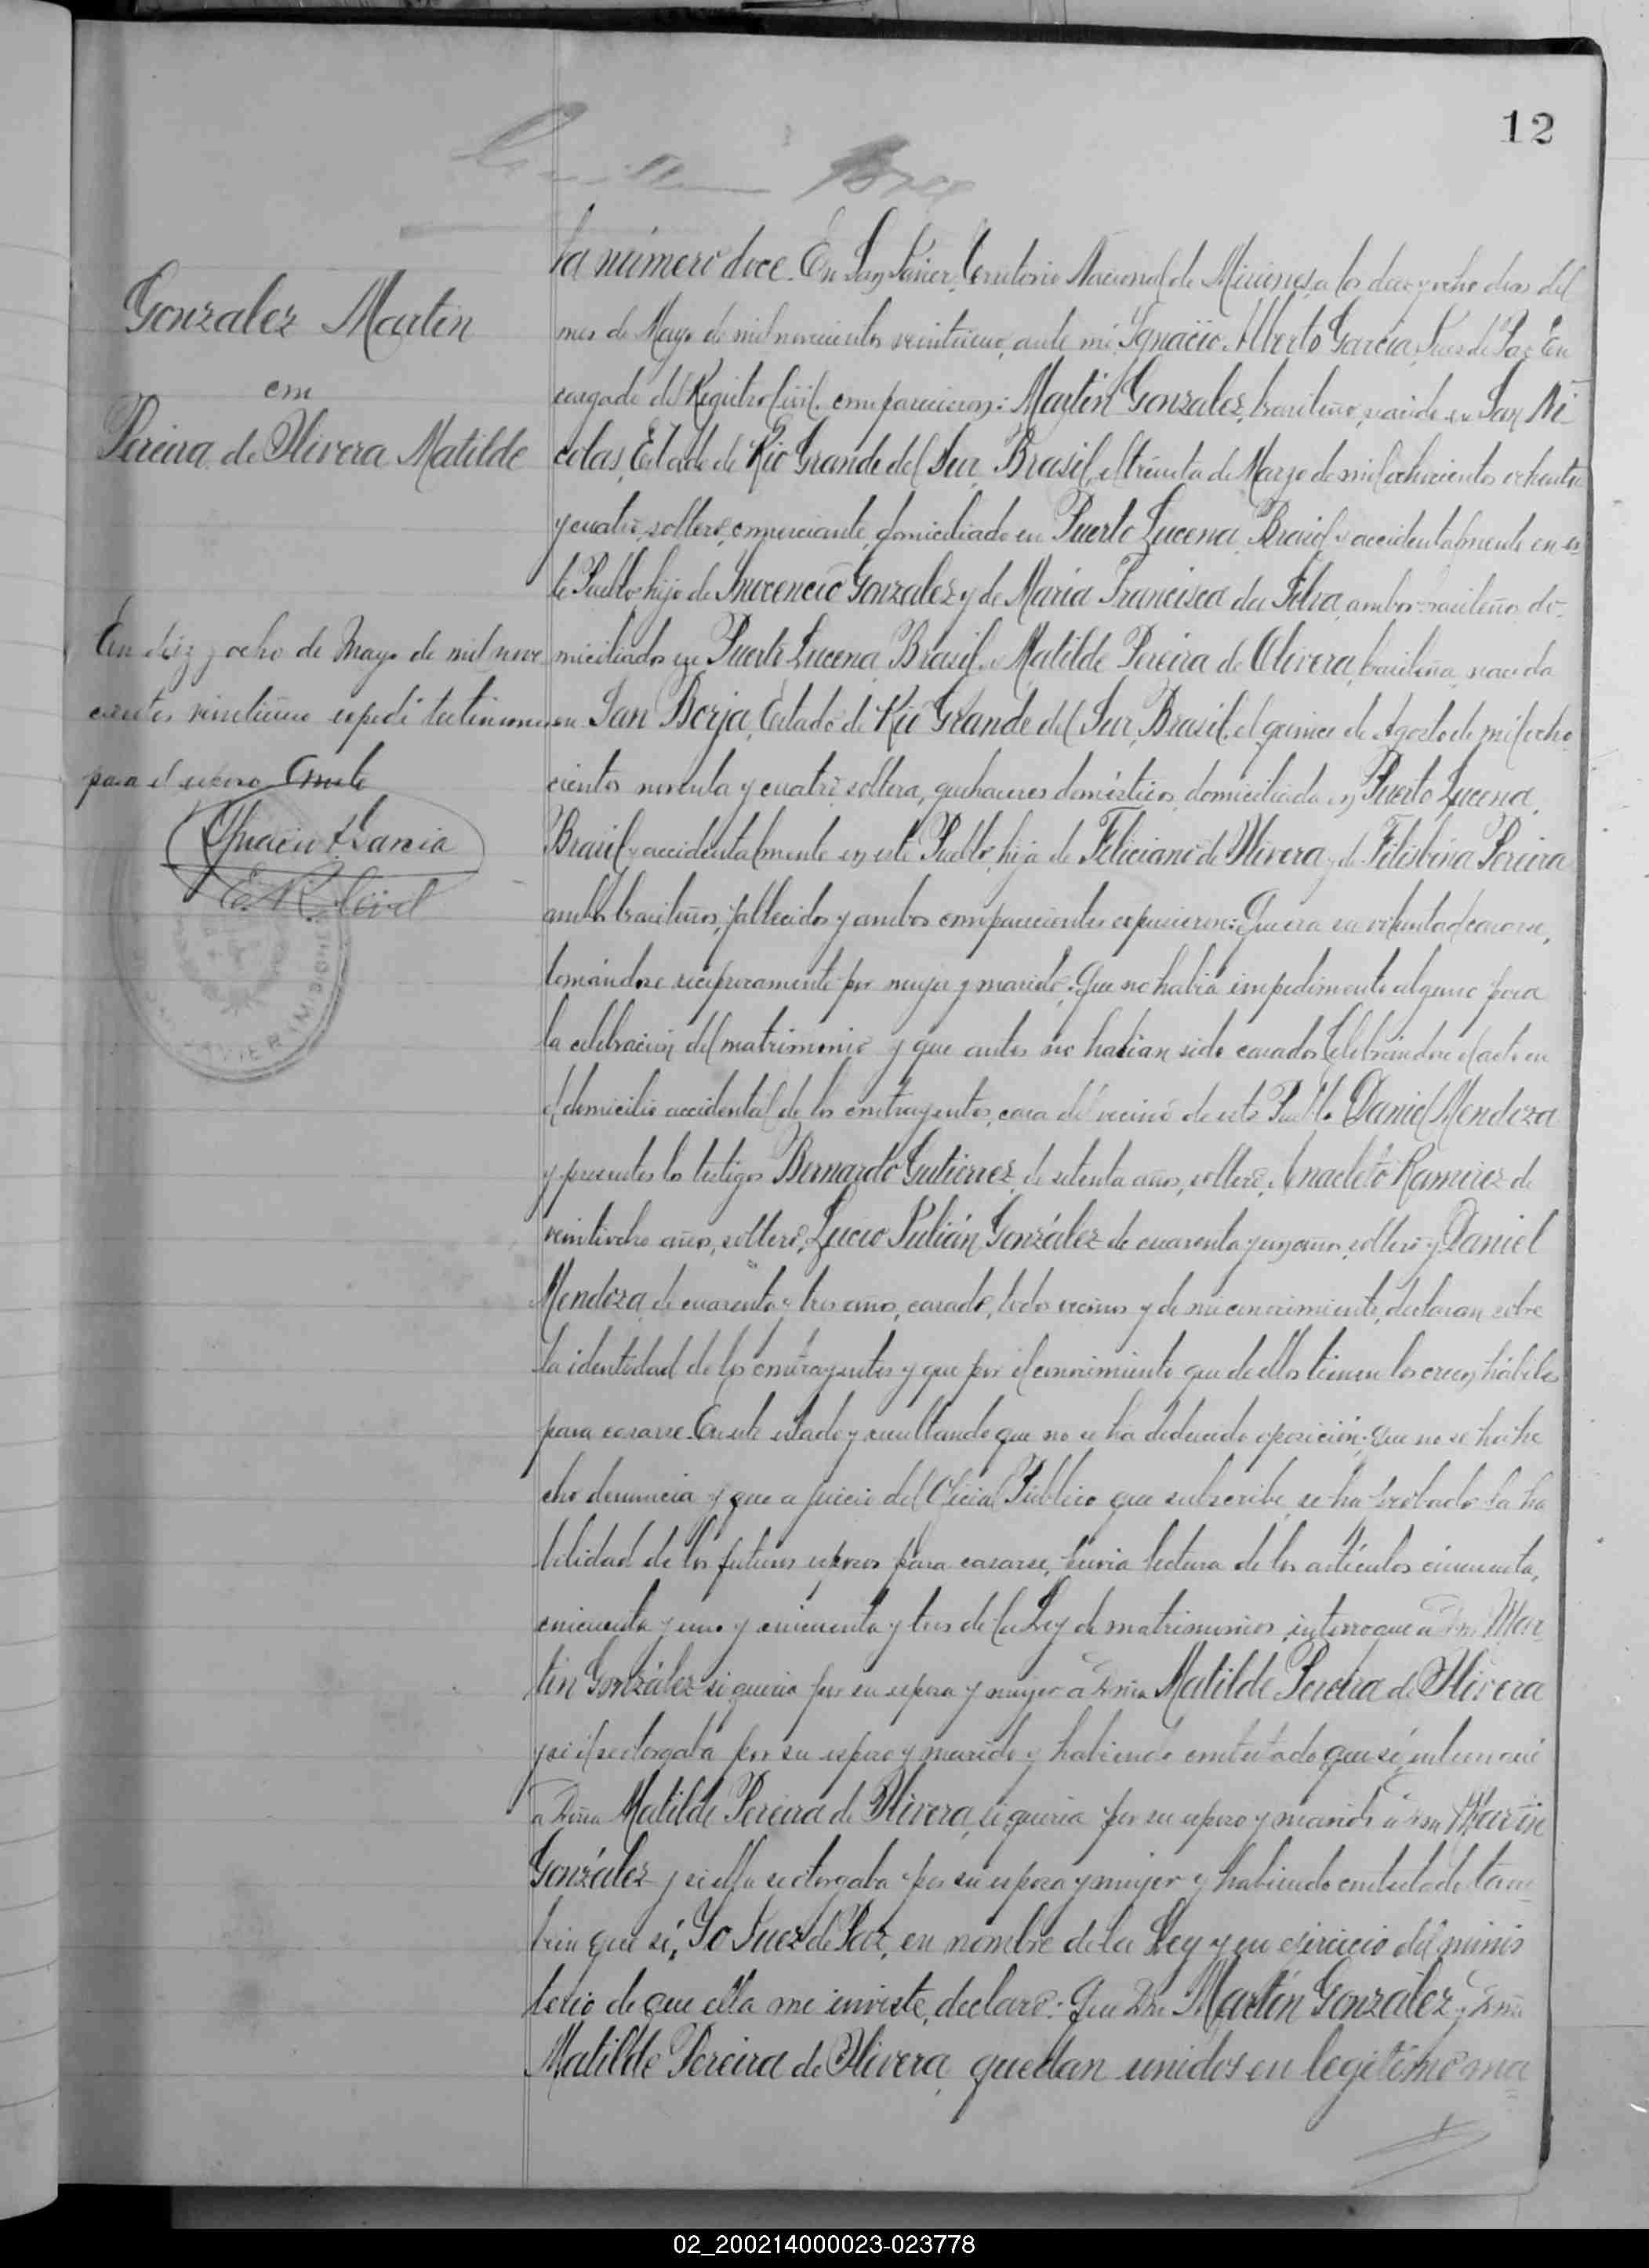 12
Gonzalez Martin
con
Pereira de Olivera Matilde
En diez y ocho de Mayo de mil nove
cientos veintiuno expedí testimonio
para el esposo. Conste
Ignacio A García
E. R. Civil
ta número doce. En San Javier, Territorio Nacional de Misiones, a los diez y ocho dias del
mes de Mayo de mil novecientos veintiuno, ante mi, Ignacio Alberto García, Juez de Paz En
cargado del Registro Civil, comparecieron: Martin Gonzalez, brasileño, nacido en San Ni-
colas, Estado de Rio Grande del Sur, Brasil, el treinta de Marzo de mil ochocientos ochenta
y cuatro, soltero, comerciante, domiciliado en Puerto Lucena, Brasil y accidentalmente en es-
te Pueblo, hijo de Inocencio Gonzalez y de Maria Francisca da Silva, ambos brasileños, do-
miciliados en Puerto Lucena, Brasil, y Matilde Pereira de Olivera, brasileña, nacida
en San Borja, Estado de Rio Grande del Sur, Brasil, el quince de Agosto de mil ocho
cientos noventa y cuatro, soltera, quehaceres domésticos, domiciliada en Puerto Lucena,
Brasil y accidentalmente en este Pueblo, hija de Feliciano de Olivera y de Felisbina Pereira
ambos brasileños, fallecidos y ambos comparecientes expusieron: Que era su voluntad casarse,
tomándose reciprocamente por mujer y marido. Que no habia impedimento alguno para
la celebración del matrimonio y que antes no habian sido casados. Celebrándose el acto en
el domicilio accidental de los contrayentes, casa del vecino de este Pueblo Daniel Mendoza
y presentes los testigos Bernardo Gutierrez, de setenta años, soltero, Anacleto Ramirez de
veintiocho años, soltero, Lucio Julián González de cuarenta y un años, soltero y Daniel
Mendoza, de cuarenta y tres años, casado, todos vecinos y de mi conocimiento, declaran sobre
la identidad de los contrayentes y que por el conocimiento que de ellos tienen los creen hábiles
para casarse. En este estado y resultando que no se ha deducido oposición; que no se ha he
cho denuncia y que a juicio del Oficial Público que subscribe, se ha probado la ha
bilidad de los futuros esposos para casarse, previa lectura de los artículos cincuenta,
cincuenta y uno y cincuenta y tres de la Ley de matrimonios, interrogué a Don Mar-
tin González si queria por su esposa y mujer a Doña Matilde Pereira de Olivera
y si él se otorgaba por su esposo y marido y habiendo contestado que sí, interrogué
a Doña Matilde Pereira de Olivera, si queria por su esposo y marido a Don Martin
González y si ella se otorgaba por su esposa y mujer y habiendo contestado tam-
bien que sí, Yo Juez de Paz, en nombre de la Ley y en ejercicio del minis
terio de que ella me inviste, declaro: Que Don Martín González y Doña
Matilde Pereira de Olivera, quedan unidos en legitimo ma
02_200214000023-023778